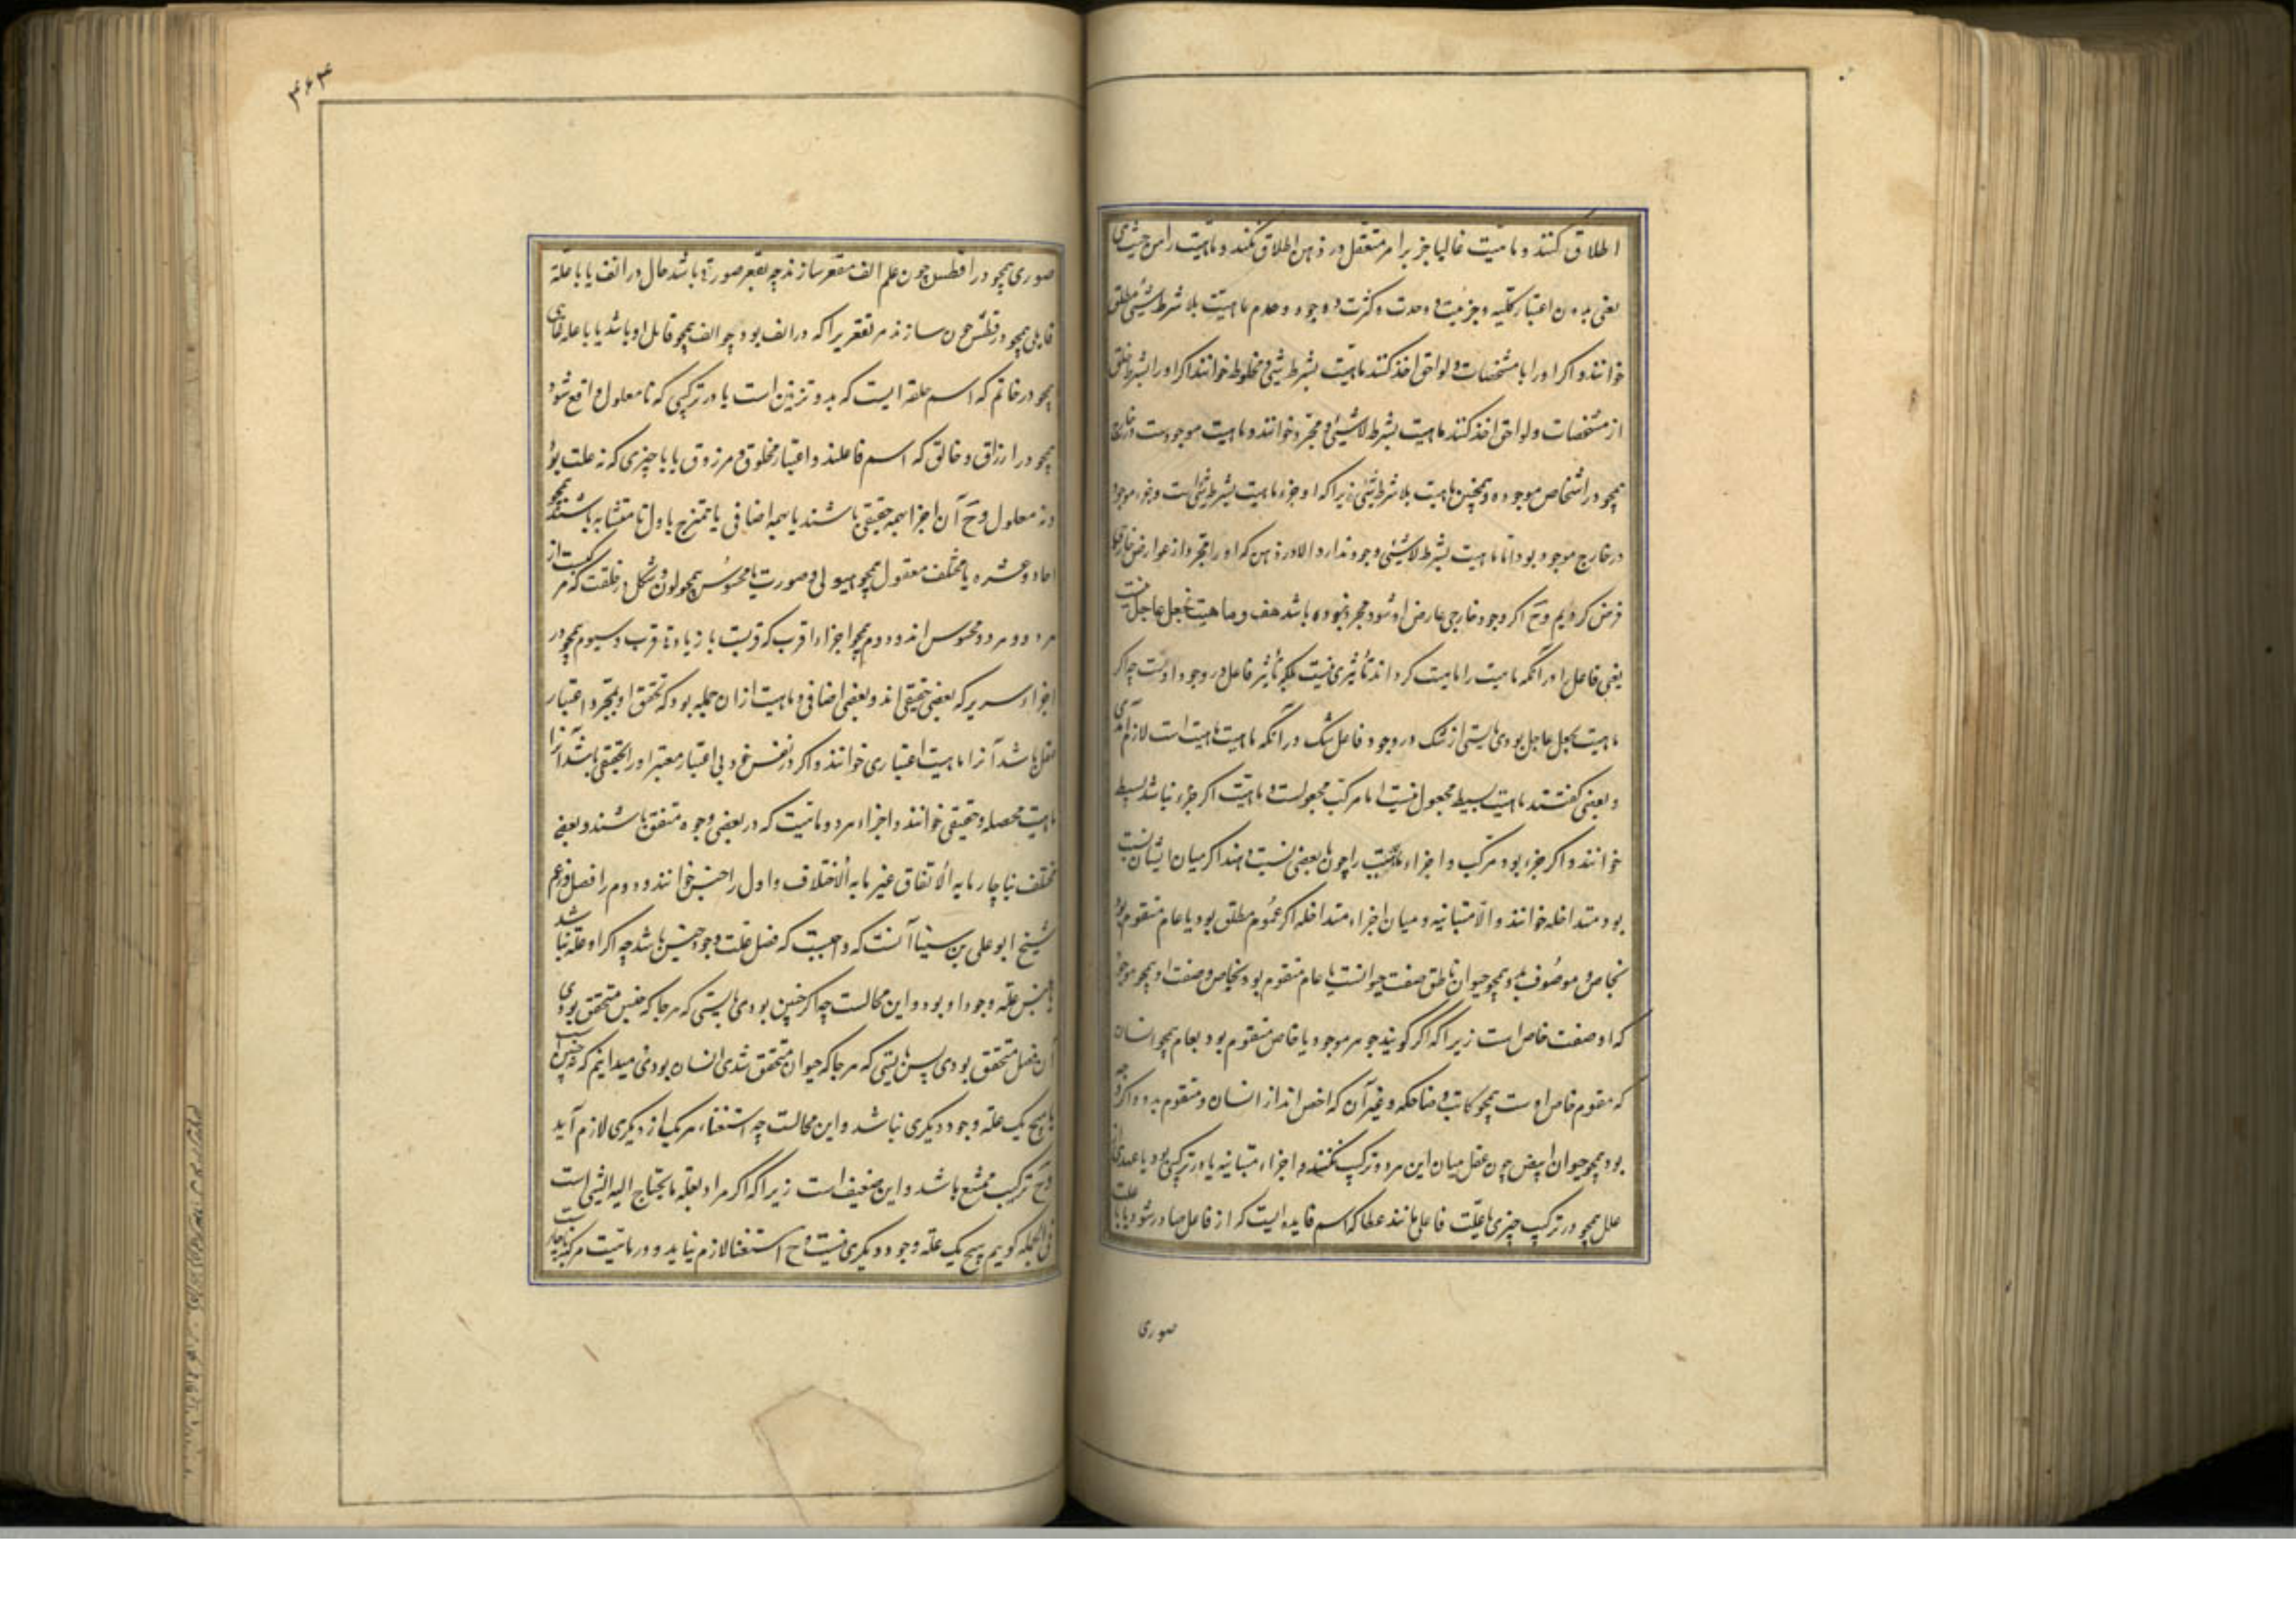 اطلاق کنند و ماهیت غالبا جز بر امر متعقل در ذهن اطلاق نکنند و ماهیت را من حیث هی
یعنی بدون اعتبار کلیه و جزئیت و وحدت و کثرت و وجود و عدم ماهیت بلا شرط شیئی و مطلق
خوانند و اکر او را با مشخصات و لواحق اخذ کنند ماهیت بشرط شیئی و مخلوط خوانند اکر او را بشرط خلو
از مشخصات و لواحق اخذ کنند ماهیت بشرط لا شیئی و مجرد خوانند و ماهیت موجودست در خارج
همچو در اشخاص موجوده و همچنین ماهیت بلا شرط شیئی زیرا که او جزء ماهیت بشرط شیئی است و جزء موجود
در خارج موجود بود اما ماهیت بشرط لا شیئی وجود ندارد الا در ذهن که او را مجرد از عوارض خارجی
فرض کردیم و ح اکر وجود خارجی عارض او شود مجرد نبوده باشد هف و ماهیت بجعل جاعل نیست
یعنی فاعل را در آنکه ماهیت را ماهیت کرداند تأثیری نیست بلکه تأثیر فاعل در وجود اوست چه اکر
ماهیت بجعل جاعل بودی بایستی از شک در وجود فاعل شک در آنکه ماهیت ماهیت است لازم آمدی
و بعضی کفتند ماهیت بسیط مجعول نیست اما مرکب مجعولست و ماهیت اکر جزء نباشد بسیط
خوانند و اکر جزء بود مرکب و اجزاء ماهیت را چون با بعضی نسبت دهند اکر میان ایشان نسبت
بود متداخله خوانند و الا متباینه و میان اجزاء متداخله اکر عموم مطلق بود یا عام متقوم بود
بخاص و موصوف بدو همچو حیوان ناطق صفت حیوانست یا عام متقوم بود بخاص و صفت او همچو موجود
که او صفت خاص است زیرا که اکر کویند جوهر موجود یا خاص متقوم بود بعام همچو انسان
که مقوم خاص اوست همچو کاتب و ضاحک و غیر آن که اخص اند از انسان و متقوم بدو و اکر
بود همچو حیوان ابیض چون عقل میان این هر دو ترکیب کنند و اجزاء متباینه یا در ترکیبی بود با احدی
علل همچو در ترکیب چیزی با علت فاعلی مانند عطا که اسم فایده ایست که از فاعل صادر شود یا با علت
صوری
۴۶۳
صوری همچو در افطس چون علم انف مقعر سازند چه تقعر صورة باشد حال در انف یا با علة
قابلی همچو در فطس چون سازند مر تقعر را که در انف بود چو انف همچو قابل او باشد یا با علة غائی
همچو در خاتم که اسم حلقه ایست که بدو تزیین است یا در ترکیبی که با معلول واقع شود
همچو در ارزاق و خالق که اسم فاعلند و اعتبار مخلوق و مرزوق یا با چیزی که نه علت بود
و نه معلول و ح آن اجزا همه حقیقی باشند یا همه اضافی یا ممتزج یا اول تا متشابه باشند همچو
احاد عشره یا مختلف معقول همچو هیولی و صورت یا محسوس همچو لون و شکل در خلقت که مرکبست از
هر دو و هر دو محسوس اند و دوم همچو اجزاء اقرب که قربت با زیادة قرب و سیوم همچو در
اجزاء سریر که بعضی حقیقی اند و بعضی اضافی و ماهیت از ان جمله بود که تحقق او بمجرد اعتبار
عقل باشد آنرا ماهیت اعتباری خوانند و اکر در نفس خود بی اعتبار معتبر او را تحققی باشد آنرا
ماهیت محصله و حقیقی خوانند و اجزاء هر دو ماهیت که در بعضی وجوه متفق باشند و بعضی
مختلف ناچار ما به الاتفاق غیر ما به الاختلاف و اول را جنس خوانند و دوم را فصل و زعم
شیخ ابو علی بن سینا آنست که واجبست که فصل علت وجود جنس باشد چه اکر او علة نباشد
یا جنس علة وجود او بود و این محالست چه اکر چنین بودی بایستی که هر جا که جنس متحقق بودی
آن فصل متحقق بودی پس بایستی که هر جا که حیوان متحقق شدی انسان بودی و میدانیم که نه چنین است
یا هیچ یک علة وجود دیکری نباشد و این محالست چه استغناء هر یک از دیکری لازم آید
و ح ترکیب ممتنع باشد و این ضعیف است زیرا که اکر مراد بعلة ما یحتاج الیه الشئ است
فی الجمله کویم هیچ یک علة وجود دیکری نیست و ح استغنا لازم نیاید و در ماهیت مرکبه ناچارست